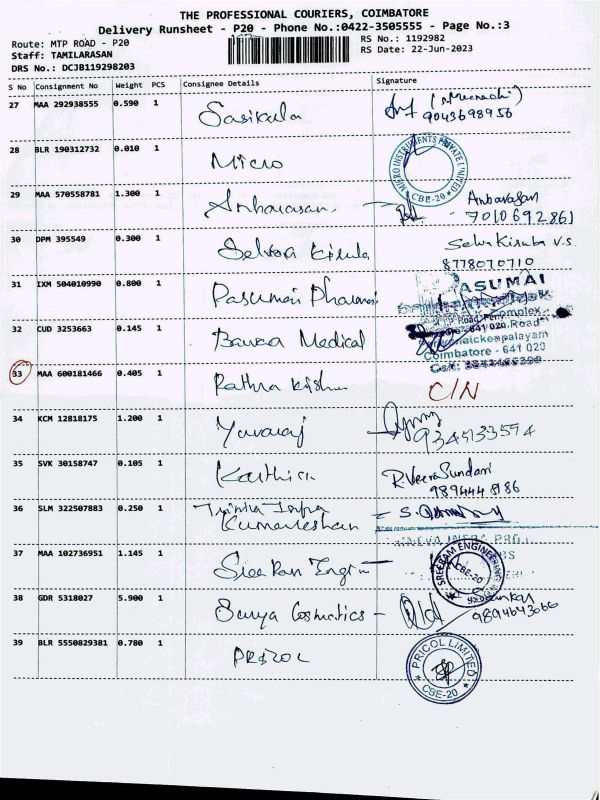 THE PROFESSIONAL COURIERS, COIMBATORE
Delivery Runsheet - P20 - Phone No.:0422-3505555 - Page No.:3
Route: MTP ROAD - P20
RS No.: 1192982
Staff: TAMILARASAN
RS Date: 22-Jun-2023
DRS No.: DCJB119298203
S No Consignment No Weight PCS Consignee Details Signature
27 MAA 292938555 0.590 1 Sasikala (Meenachi)
9043698956
28 BLR 190312732 0.010 1 Micro MICRO INSTRUMENTS PRIVATE LIMITED CBE-20
29 MAA 570558781 1.300 1 Anbarasan Anbarasan
7010692861
30 DPM 395549 0.300 1 Selva Kiruba Selva Kiruba v.s.
8778070710
31 IXM 504010990 0.800 1 Pasumai Pharmacy PASUMAI
Complex
32 CUD 3253663 0.145 1 Medical 641 020 Road
naickenpalayam
Coimbatore - 641 020
33 MAA 600181466 0.405 1 Rathna C/N
34 KCM 12818175 1.200 1 Yuvaraj 9345133594
35 SVK 30158747 0.105 1 Karthik R.VeeraSundari
36 SLM 322507883 0.250 1 Infra
Kumareshan
37 MAA 102736951 1.145 1 Sree Ram Engg SREERAM ENGINEERING CBE-20
38 GDR 5318027 5.900 1 Surya Cosmetics
9894643066
39 BLR 5550829381 0.780 1 PRICOL PRICOL LIMITED CBE-20